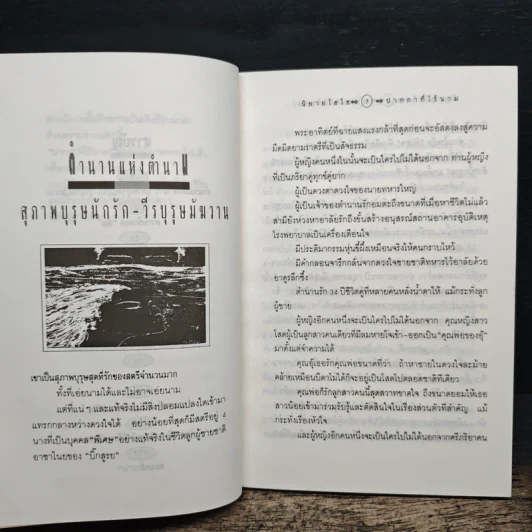 ตำนานแห่งตำนาน
สุภาพบุรุษนักรัก-วีรบุรุษมัฆวาน
เขาเป็นสุภาพบุรุษสุดที่รักของสตรีจำนวนมาก
ทั้งที่เอ่ยนามได้และไม่อาจเอ่ยนาม
แต่ที่แน่ๆ และแท้จริงไม่มีสิ่งปลอมแปลงใดเข้ามา
แทรกกลางหว่างดวงใจได้ อย่างน้อยที่สุดก็มีสตรีอยู่ 4
นางที่เป็นบุคคล"พิเศษ"อย่างแท้จริงในชีวิตลูกผู้ชายชาติ
อาชาไนยของ "บิ๊กสูรย์"
นิยายไฮโซ 7 ปาหลาที่ไร้นาม
พระอาทิตย์ที่ฉายแสงแรงกล้าที่สุดก่อนจะอัสดงลงสู่ความ
มืดมิดยามราตรีที่เป็นสัจธรรม
ผู้หญิงคนหนึ่งในนั้นจะเป็นใครไปไม่ได้นอกจาก ท่านผู้หญิง
ที่เป็นภริยาคู่ทุกข์คู่ยาก
ผู้เป็นดวงตาดวงใจของนายทหารใหญ่
ผู้เป็นเจ้าของตำนานรักอมตะถึงขนาดที่เมื่อหาชีวิตไม่แล้ว
สามียังห่วงหาอาลัยรักถึงขั้นสร้างอนุสรณ์สถานอาคารอุบัติเหตุ
โรงพยาบาลเป็นเครื่องเตือนใจ
มีประติมากรรมหุ่นขี้ผึ้งเหมือนจริงให้คนกราบไหว้
มีคำกลอนจารึกกลั่นจากดวงใจชายชาติทหารไว้อาลัยด้วย
อาดูรลึกซึ้ง
ตำนานรัก 34 ปีชีวิตคู่ที่หลายคนหลั่งน้ำตาให้ แม้กระทั่งลูก
ผู้ชาย
ผู้หญิงอีกคนหนึ่งจะเป็นใครไปไม่ได้นอกจาก คุณหญิงสาว
โสดผู้เป็นลูกสาวคนเดียวที่มีลมหายใจเข้า-ออกเป็น"คุณพ่อของอุ๊"
มาตั้งแต่จำความได้
คุณอุ๊เธอรักคุณพ่อขนาดที่ว่า ถ้าหาชายในดวงใจละม้าย
คล้ายเหมือนบิดาไม่ได้ก็จะอยู่เป็นโสดไปตลอดชาติทีเดียว
คุณพ่อก็รักลูกสาวคนนี้สุดสวาทขาดใจ ถึงขนาดยอมให้เธอ
สาวน้อยเข้ามาร่วมรับรู้และตัดสินใจในเรื่องส่วนตัวที่สำคัญ แม้
กระทั่งเรื่องหัวใจ
และผู้หญิงอีกคนหนึ่งจะเป็นใครไปไม่ได้นอกจากศรีภริยาคน